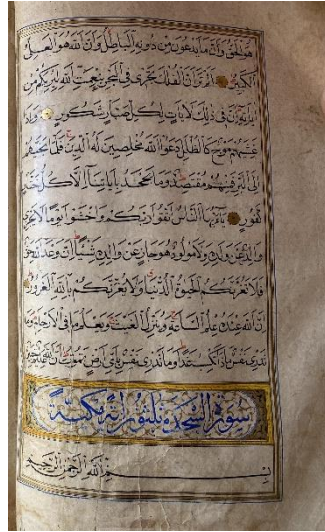 هو الحق وأن ما يدعون من دونه الباطل وأن الله هو العلي
الكبير ألم تر أن الفلك تجري في البحر بنعمت الله ليريكم من
آياته إن في ذلك لآيات لكل صبار شكور وإذا
غشيهم موج كالظلل دعوا الله مخلصين له الدين فلما نجيهم
إلى البر فمنهم مقتصد وما يجحد بآياتنا إلا كل ختار
كفور يا أيها الناس اتقوا ربكم واخشوا يوما لا يجزي
والد عن ولده ولا مولود هو جاز عن والده شيئا إن وعد الله حق
فلا تغرنكم الحيوة الدنيا ولا يغرنكم بالله الغرور
إن الله عنده علم الساعة وينزل الغيث ويعلم ما في الأرحام وما
تدري نفس ماذا تكسب غدا وما تدري نفس بأي أرض تموت إن الله عليم خبير
سورة السجدة ثلثون آية مكية
بسم الله الرحمن الرحيم